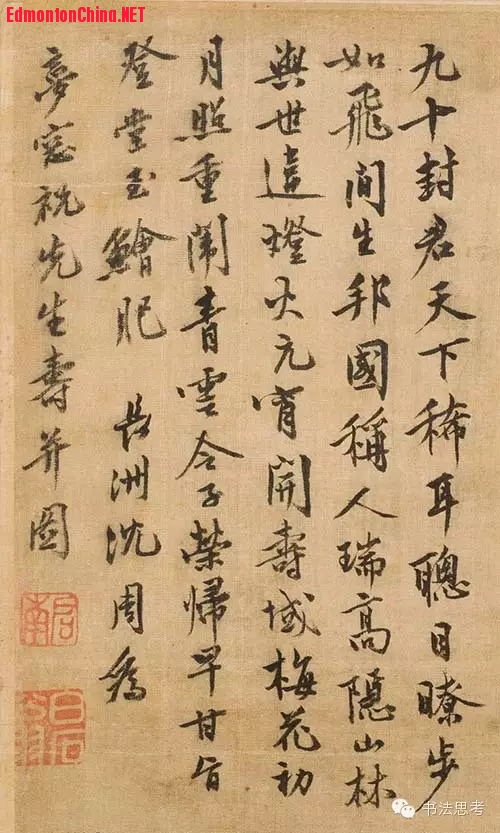 EdmontonChina.NET
九十封君天下稀耳聰目瞭步
如飛間生邦國稱人瑞高隱山林
與世違燈火元宵開壽域梅花初
月照重闈青雲令子榮歸早甘旨
登堂玉鱠肥 長洲沈周為
夢窓祝先生壽并圖
啟南
白石翁
书法思考